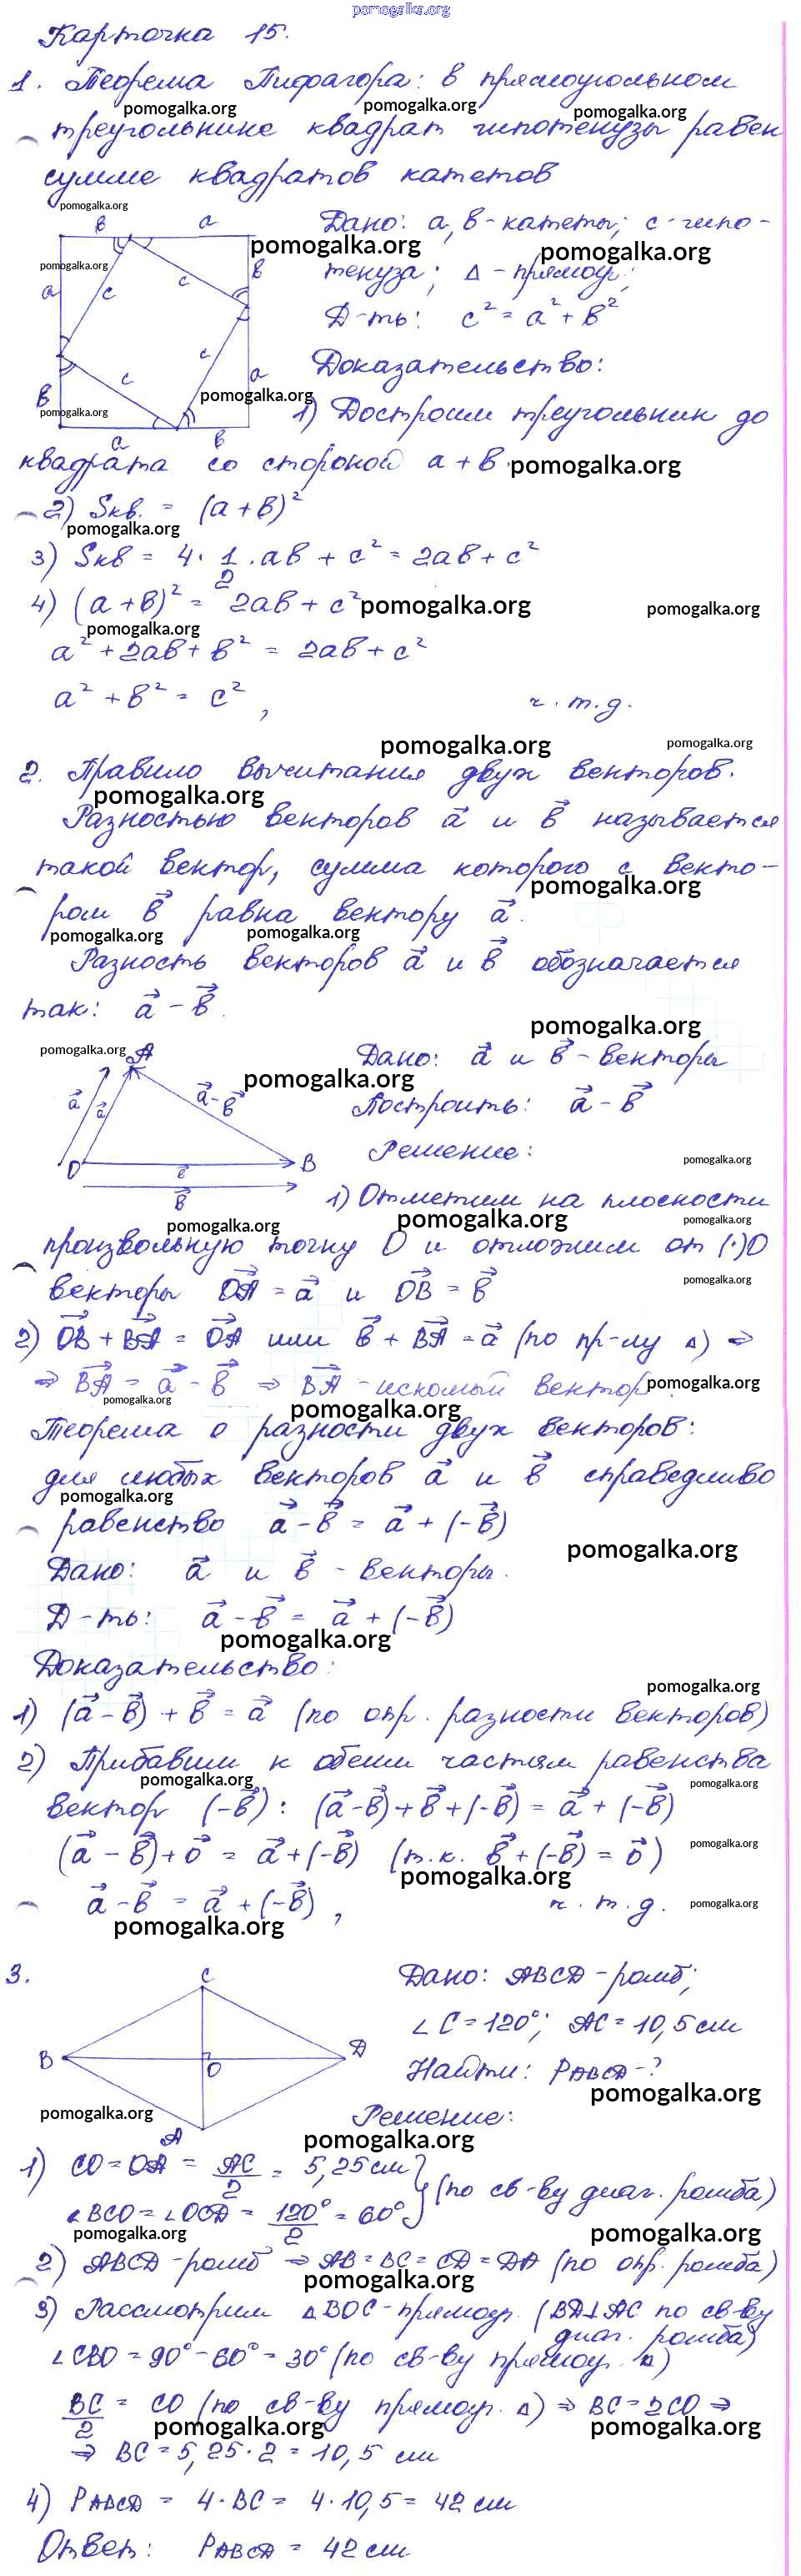 pomogalka.org
Карточка 15.
1. Теорема Пифагора: в прямоугольном
треугольнике квадрат гипотенузы равен
сумме квадратов катетов
Дано: a, в - катеты; c - гипо-
тенуза; Δ - прямоуг;
Д-ть: c² = a² + в²
Доказательство:
1) Достроим треугольник до
квадрата со стороной a + в.
2) Sкв. = (a + в)²
3) Sкв = 4 · 1/2 · aв + c² = 2aв + c²
4) (a + в)² = 2aв + c²
a² + 2aв + в² = 2aв + c²
a² + в² = c², ч.т.д.
2. Правило вычитания двух векторов.
Разностью векторов a⃗ и в⃗ называется
такой вектор, сумма которого с векто-
ром в⃗ равна вектору a⃗.
Разность векторов a⃗ и в⃗ обозначается
так: a⃗ - в⃗.
Дано: a⃗ и в⃗ - векторы
Построить: a⃗ - в⃗
Решение:
1) Отметим на плоскости
произвольную точку O и отложим от (·)O
векторы OA⃗ = a⃗ и OB⃗ = в⃗
2) OB⃗ + BA⃗ = OA⃗ или в⃗ + BA⃗ = a⃗ (по пр-лу Δ) ⇒
⇒ BA⃗ = a⃗ - в⃗ ⇒ BA⃗ - искомый вектор.
Теорема о разности двух векторов:
для любых векторов a⃗ и в⃗ справедливо
равенство a⃗ - в⃗ = a⃗ + (-в⃗)
Дано: a⃗ и в⃗ - векторы.
Д-ть: a⃗ - в⃗ = a⃗ + (-в⃗)
Доказательство:
1) (a⃗ - в⃗) + в⃗ = a⃗ (по опр. разности векторов)
2) Прибавим к обеим частям равенства
вектор (-в⃗): (a⃗ - в⃗) + в⃗ + (-в⃗) = a⃗ + (-в⃗)
(a⃗ - в⃗) + 0⃗ = a⃗ + (-в⃗) (т.к. в⃗ + (-в⃗) = 0⃗)
a⃗ - в⃗ = a⃗ + (-в⃗), ч.т.д.
3. Дано: ABCD - ромб;
∠C = 120°; AC = 10,5 см
Найти: PABCD - ?
Решение:
1) CO = OA = AC/2 = 5,25 см
∠BCO = ∠OCD = 120°/2 = 60° } (по св-ву диаг. ромба)
2) ABCD - ромб ⇒ AB = BC = CD = DA (по опр. ромба)
3) Рассмотрим ΔBOC - прямоуг. (BD⊥AC по св-ву
диаг. ромба)
∠CBO = 90° - 60° = 30° (по св-ву прямоуг. Δ)
BC/2 = CO (по св-ву прямоуг. Δ) ⇒ BC = 2CO ⇒
⇒ BC = 5,25 · 2 = 10,5 см
4) PABCD = 4 · BC = 4 · 10,5 = 42 см
Ответ: PABCD = 42 см